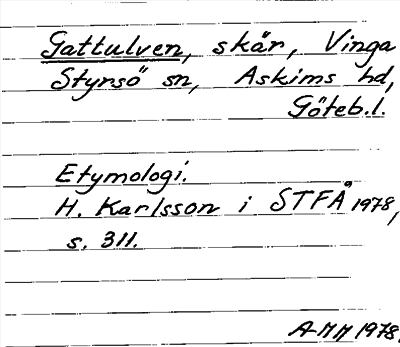 Gattulven, skär, Vinga
Styrsö sn, Askims hd,
Göteb.l.
Etymologi.
H. Karlsson i STFÅ 1978,
s. 311.
A-MM 1978.